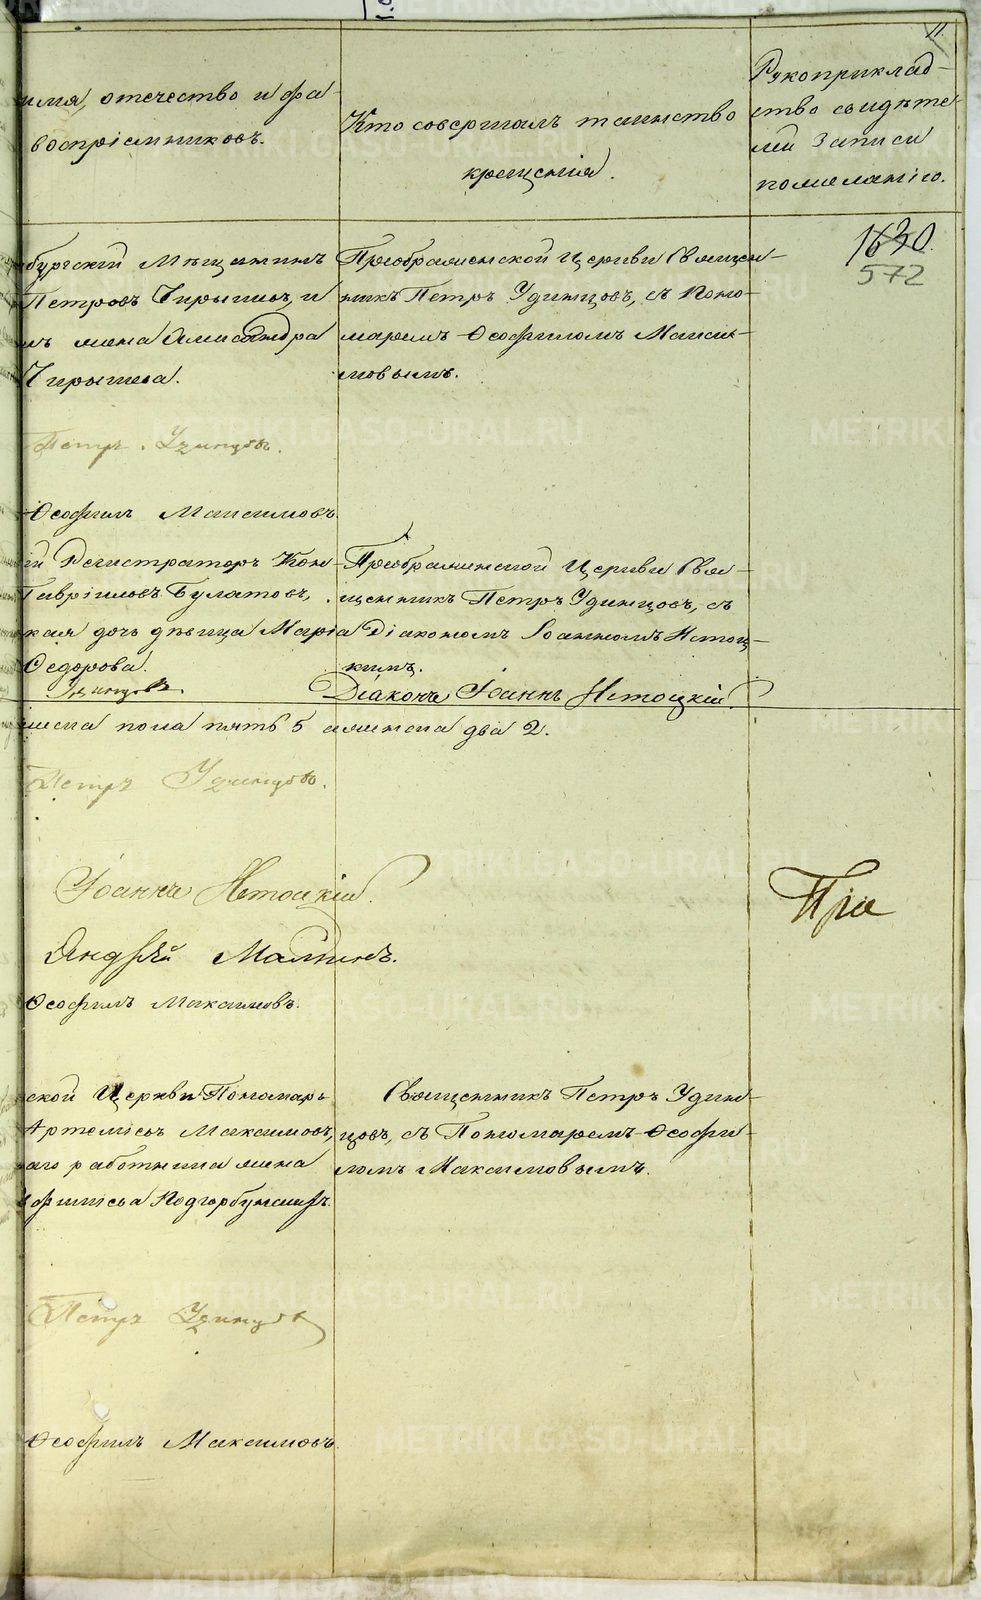 11
имя, отечество и фа
воспріемниковъ.
Кто совершалъ таинство
крещенія.
Рукоприклад-
ство свидѣте
лей записи
по желанію.
1630.
572
бургскій Мѣщанинъ
Петровъ Чирьевъ, и
жена Александра
Преображенской Церкви Священ-
никъ Петръ Удинцовъ, съ Поно-
маремъ Ѳеофиломъ Макси-
мовымъ.
Петръ Удинцовъ.
Ѳеофилъ Максимовъ
Регистраторъ Кон-
Гавріиловъ Булатовъ,
кая дочь дѣвица Марія
Ѳедорова.
Удинцовъ.
Преображенской Церкви Свя-
щенникъ Петръ Удинцовъ, съ
Діакономъ Іоанномъ Истоц-
кимъ.
Діаконъ Іоаннъ Истоцкій.
жеска пола пять 5 а женска два 2.
Петръ Удинцовъ.
Іоаннъ Истоцкій.
Андрей
Ѳеофилъ Максимовъ.
При
ской Церкви Пономарь
Артемьевъ Максимовъ,
аго работника жена
Священникъ Петръ Удин-
цовъ, съ Пономаремъ Ѳеофи-
ломъ Максимовымъ.
Петръ Удинцовъ
Ѳеофилъ Максимовъ
METRIKI.GASO-URAL.RU